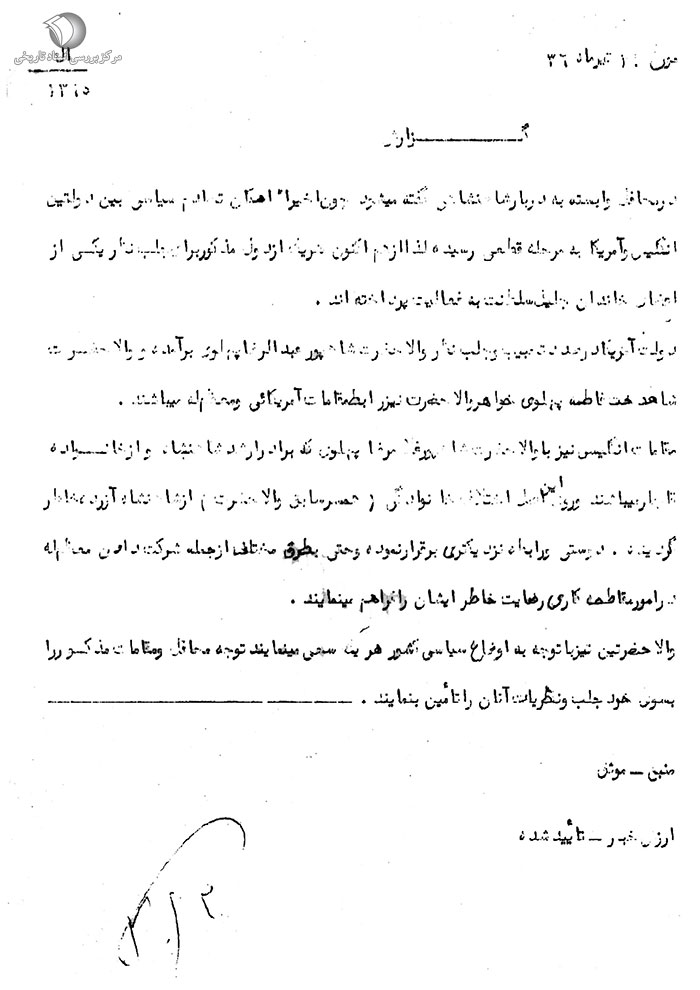 مرکز بررسی اسناد تاریخی
۳۶
۱۳۱۵
گزارش
در محافل وابسته به دربار شاهنشاهی گفته میشود چون اخیرا" امکان تصادم سیاسی بین دولتین
انگلیس و آمریکا به مرحله قطعی رسیده لذا از هم اکنون هریک از دول مذکور برای جلب نظر یکی از
اعضای خاندان جلیل سلطنت به فعالیت پرداخته اند .
دولت آمریکا درصدد تحبیب و جلب نظر والاحضرت شاهپور عبدالرضا پهلوی برآمده و والاحضرت
شاهدخت فاطمه پهلوی خواهر والاحضرت نیز رابط مقامات آمریکائی و معظم‌له میباشند .
مقامات انگلیس نیز با والاحضرت شاهپور غلامرضا پهلوی که برادر ارشد شاهنشاه و از خانــواده
قاجار میباشند و روی این اصل اختلاف ( همسر سابق والاحضرت ) از شاهنشاه آزرده خاطر
گردیده . دوستی و روابط نزدیکتری برقرار نموده و حتی بطرق مختلف از جمله شرکت دادن معظم‌له
در امور مقاطعه کاری رضایت خاطر ایشان را فراهم مینمایند .
والاحضرتین نیز با توجه به اوضاع سیاسی کشور هر یک سعی مینمایند توجه محافل و مقامات مذکــور را
بسوی خود جلب و نظریات آنان را تأمین بنمایند .
منبع ــ موثق
ارزش خبر ــ تأیید شده